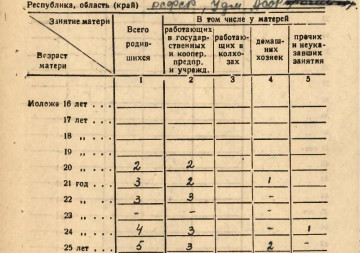 Республика, область (край) РСФСР, Удм.
Занятие матери
Возраст матери
Всего родившихся
В том числе у матерей
работающих в государственных и коопер. предпр. и учрежд.
работающих в колхозах
домашних хозяек
прочих и неуказавших занятия
1 2 3 4 5
Моложе 16 лет . . .
17 лет . . .
18 „ . . .
19 „ . . .
20 „ . . . 2 2
21 год . . . 3 2 1
22 „ . . . 3 3 -
23 „ . . . - - -
24 „ . . . 4 3 - 1
25 лет . . . 5 3 2 -